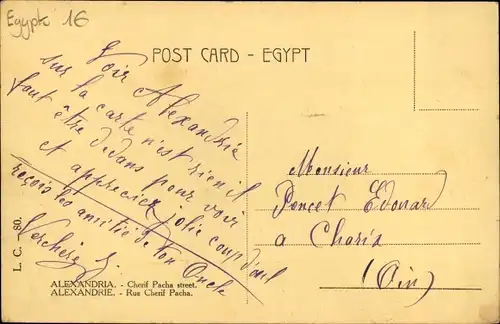 Egypte 16
POST CARD - EGYPT
Voir Alexandrie
sur la carte n'est rien il
faut être dedans pour voir
et appreciez jolie coup d'œil
reçois les amitié de ton Oncle
Monsieur
Poncet Edouard
a Charix
(Ain)
L. C. - 80.
ALEXANDRIA. - Cherif Pacha street.
ALEXANDRIE. - Rue Cherif Pacha.